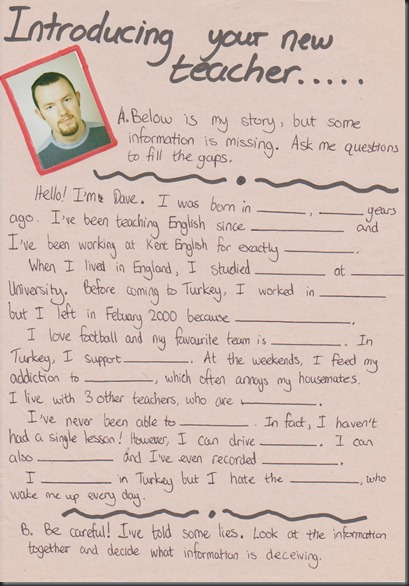 Introducing your new
teacher.....
A. Below is my story, but some
information is missing. Ask me questions
to fill the gaps.
Hello! I'm Dave. I was born in ______, ______ years
ago. I've been teaching English since ______ and
I've been working at Kent English for exactly ______.
When I lived in England, I studied ______ at ______
University. Before coming to Turkey, I worked in ______
but I left in Febuary 2000 because ______.
I love football and my favourite team is ______. In
Turkey, I support ______. At the weekends, I feed my
addiction to ______, which often annoys my housemates.
I live with 3 other teachers, who are ______.
I've never been able to ______. In fact, I haven't
had a single lesson! However, I can drive ______. I can
also ______ and I've even recorded ______.
I ______ in Turkey but I hate the ______, who
wake me up every day.
B. Be careful! I've told some lies. Look at the information
together and decide what information is deceiving.